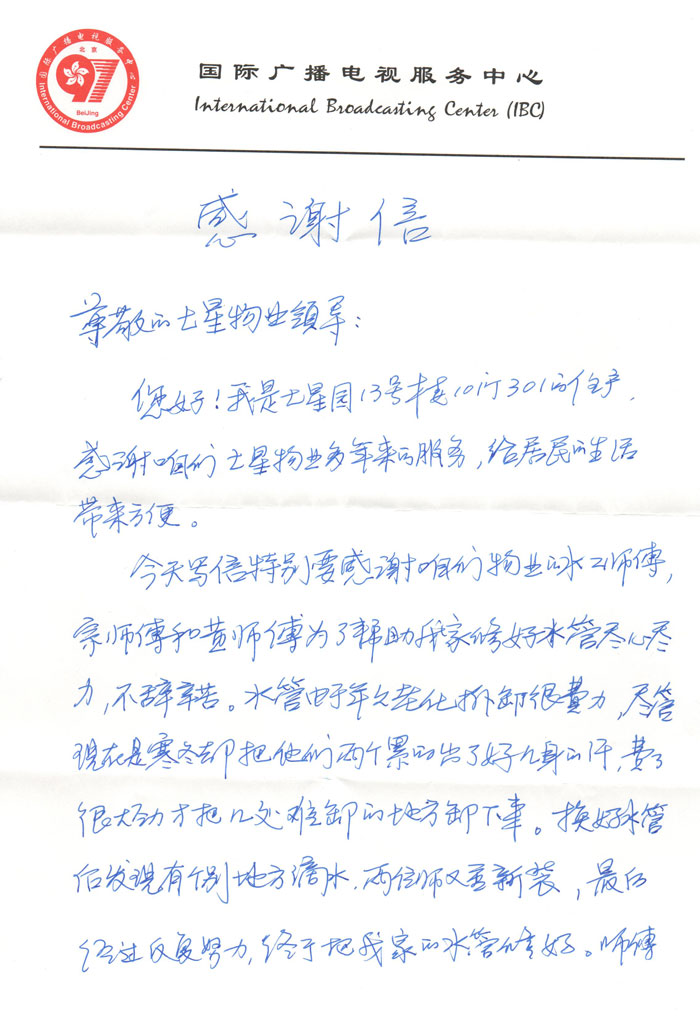 国际广播电视服务中心
北京
97
BeiJing
International Broadcasting Center
国际广播电视服务中心
International Broadcasting Center (IBC)
感谢信
尊敬的七星物业领导：
您好！我是七星园13号楼10门301的住户，
感谢咱们七星物业多年来的服务，给居民的生活
带来方便。
今天写信特别要感谢咱们物业的水工师傅，
宗师傅和黄师傅为了帮助我家修好水管尽心尽
力，不辞辛苦。水管由于年久老化拆卸很費力，尽管
现在是寒冬却把他们两个累的出了好几身的汗，費了
很大劲才把几处难卸的地方卸下来。换好水管
后发现有个别地方滴水，两位师又重新装，最后
经过反复努力，终于把我家的水管修好。师傅